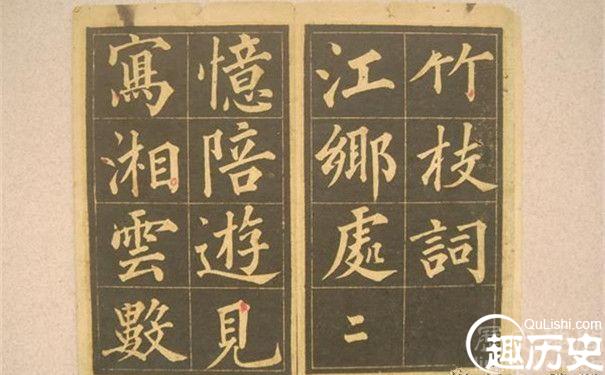 竹枝詞
江鄉處二
憶陪遊見
寫湘雲數
QuLishi.com
趣历史